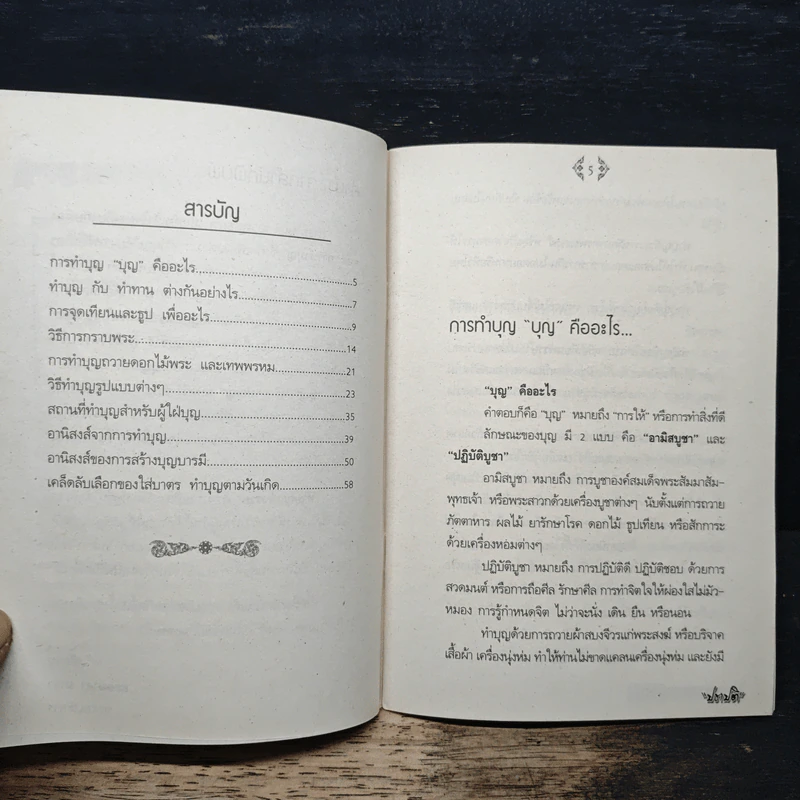 สารบัญ
การทำบุญ "บุญ" คืออะไร..................................................5
ทำบุญ กับ ทำทาน ต่างกันอย่างไร..................................7
การจุดเทียนและธูป เพื่ออะไร........................................9
วิธีการกราบพระ..........................................................14
การทำบุญถวายดอกไม้พระ และเทพพรหม......................21
วิธีทำบุญรูปแบบต่างๆ................................................23
สถานที่ทำบุญสำหรับผู้ใฝ่บุญ........................................35
อานิสงส์จากการทำบุญ................................................39
อานิสงส์ของการสร้างบุญบารมี......................................50
เคล็ดลับเลือกของใส่บาตร ทำบุญตามวันเกิด..................58
5
การทำบุญ "บุญ" คืออะไร...
"บุญ" คืออะไร
คำตอบก็คือ "บุญ" หมายถึง "การให้" หรือการทำสิ่งที่ดี
ลักษณะของบุญ มี 2 แบบ คือ "อามิสบูชา" และ
"ปฏิบัติบูชา"
อามิสบูชา หมายถึง การบูชาองค์สมเด็จพระสัมมาสัม-
พุทธเจ้า หรือพระสาวกด้วยเครื่องบูชาต่างๆ นับตั้งแต่การถวาย
ภัตตาหาร ผลไม้ ยารักษาโรค ดอกไม้ ธูปเทียน หรือสักการะ
ด้วยเครื่องหอมต่างๆ
ปฏิบัติบูชา หมายถึง การปฏิบัติดี ปฏิบัติชอบ ด้วยการ
สวดมนต์ หรือการถือศีล รักษาศีล การทำจิตใจให้ผ่องใสไม่มัว-
หมอง การรู้กำหนดจิต ไม่ว่าจะนั่ง เดิน ยืน หรือนอน
ทำบุญด้วยการถวายผ้าสบงจีวรแก่พระสงฆ์ หรือบริจาค
เสื้อผ้า เครื่องนุ่งห่ม ทำให้ท่านไม่ขาดแคลนเครื่องนุ่งห่ม และยังมี